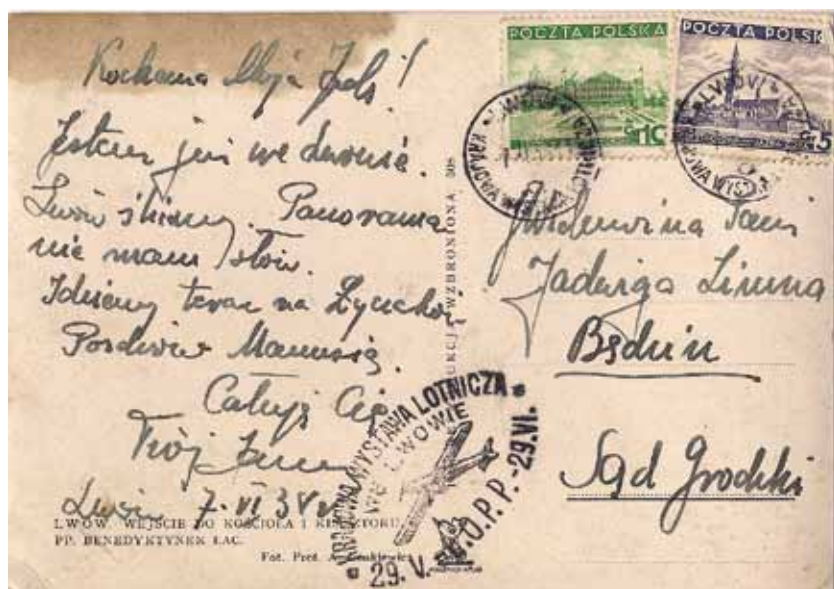 Kochana Moja
Jestem już we Lwowie.
Lwów śliczny. Panorama
nie mam słów.
Idziemy teraz na
Pozdrów Mamusię.
Całuję Cię
Twój
Lwów 7 VI 38 r
LWÓW. WEJŚCIE DO KOŚCIOŁA I KLASZTORU
PP. BENEDYKTYNEK ŁAC.
Fot. Prof. A. Lenkiewicz
WZBRONIONA 508
POCZTA POLSKA
POCZTA POLSK
KRAJOWA WYSTAWA LOTNICZA
WE LWOWIE
29.V. L.O.P.P.-29.VI.
Wielmożna Pani
Jadwiga
Będzin
Sąd Grodzki